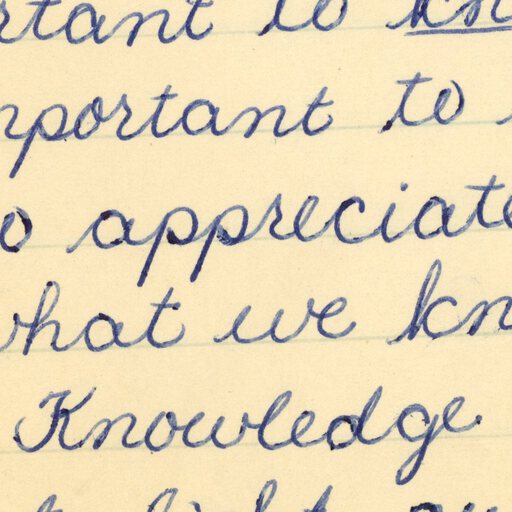 rtant to kn
mportant to
o appreciate
what we kn
Knowledge